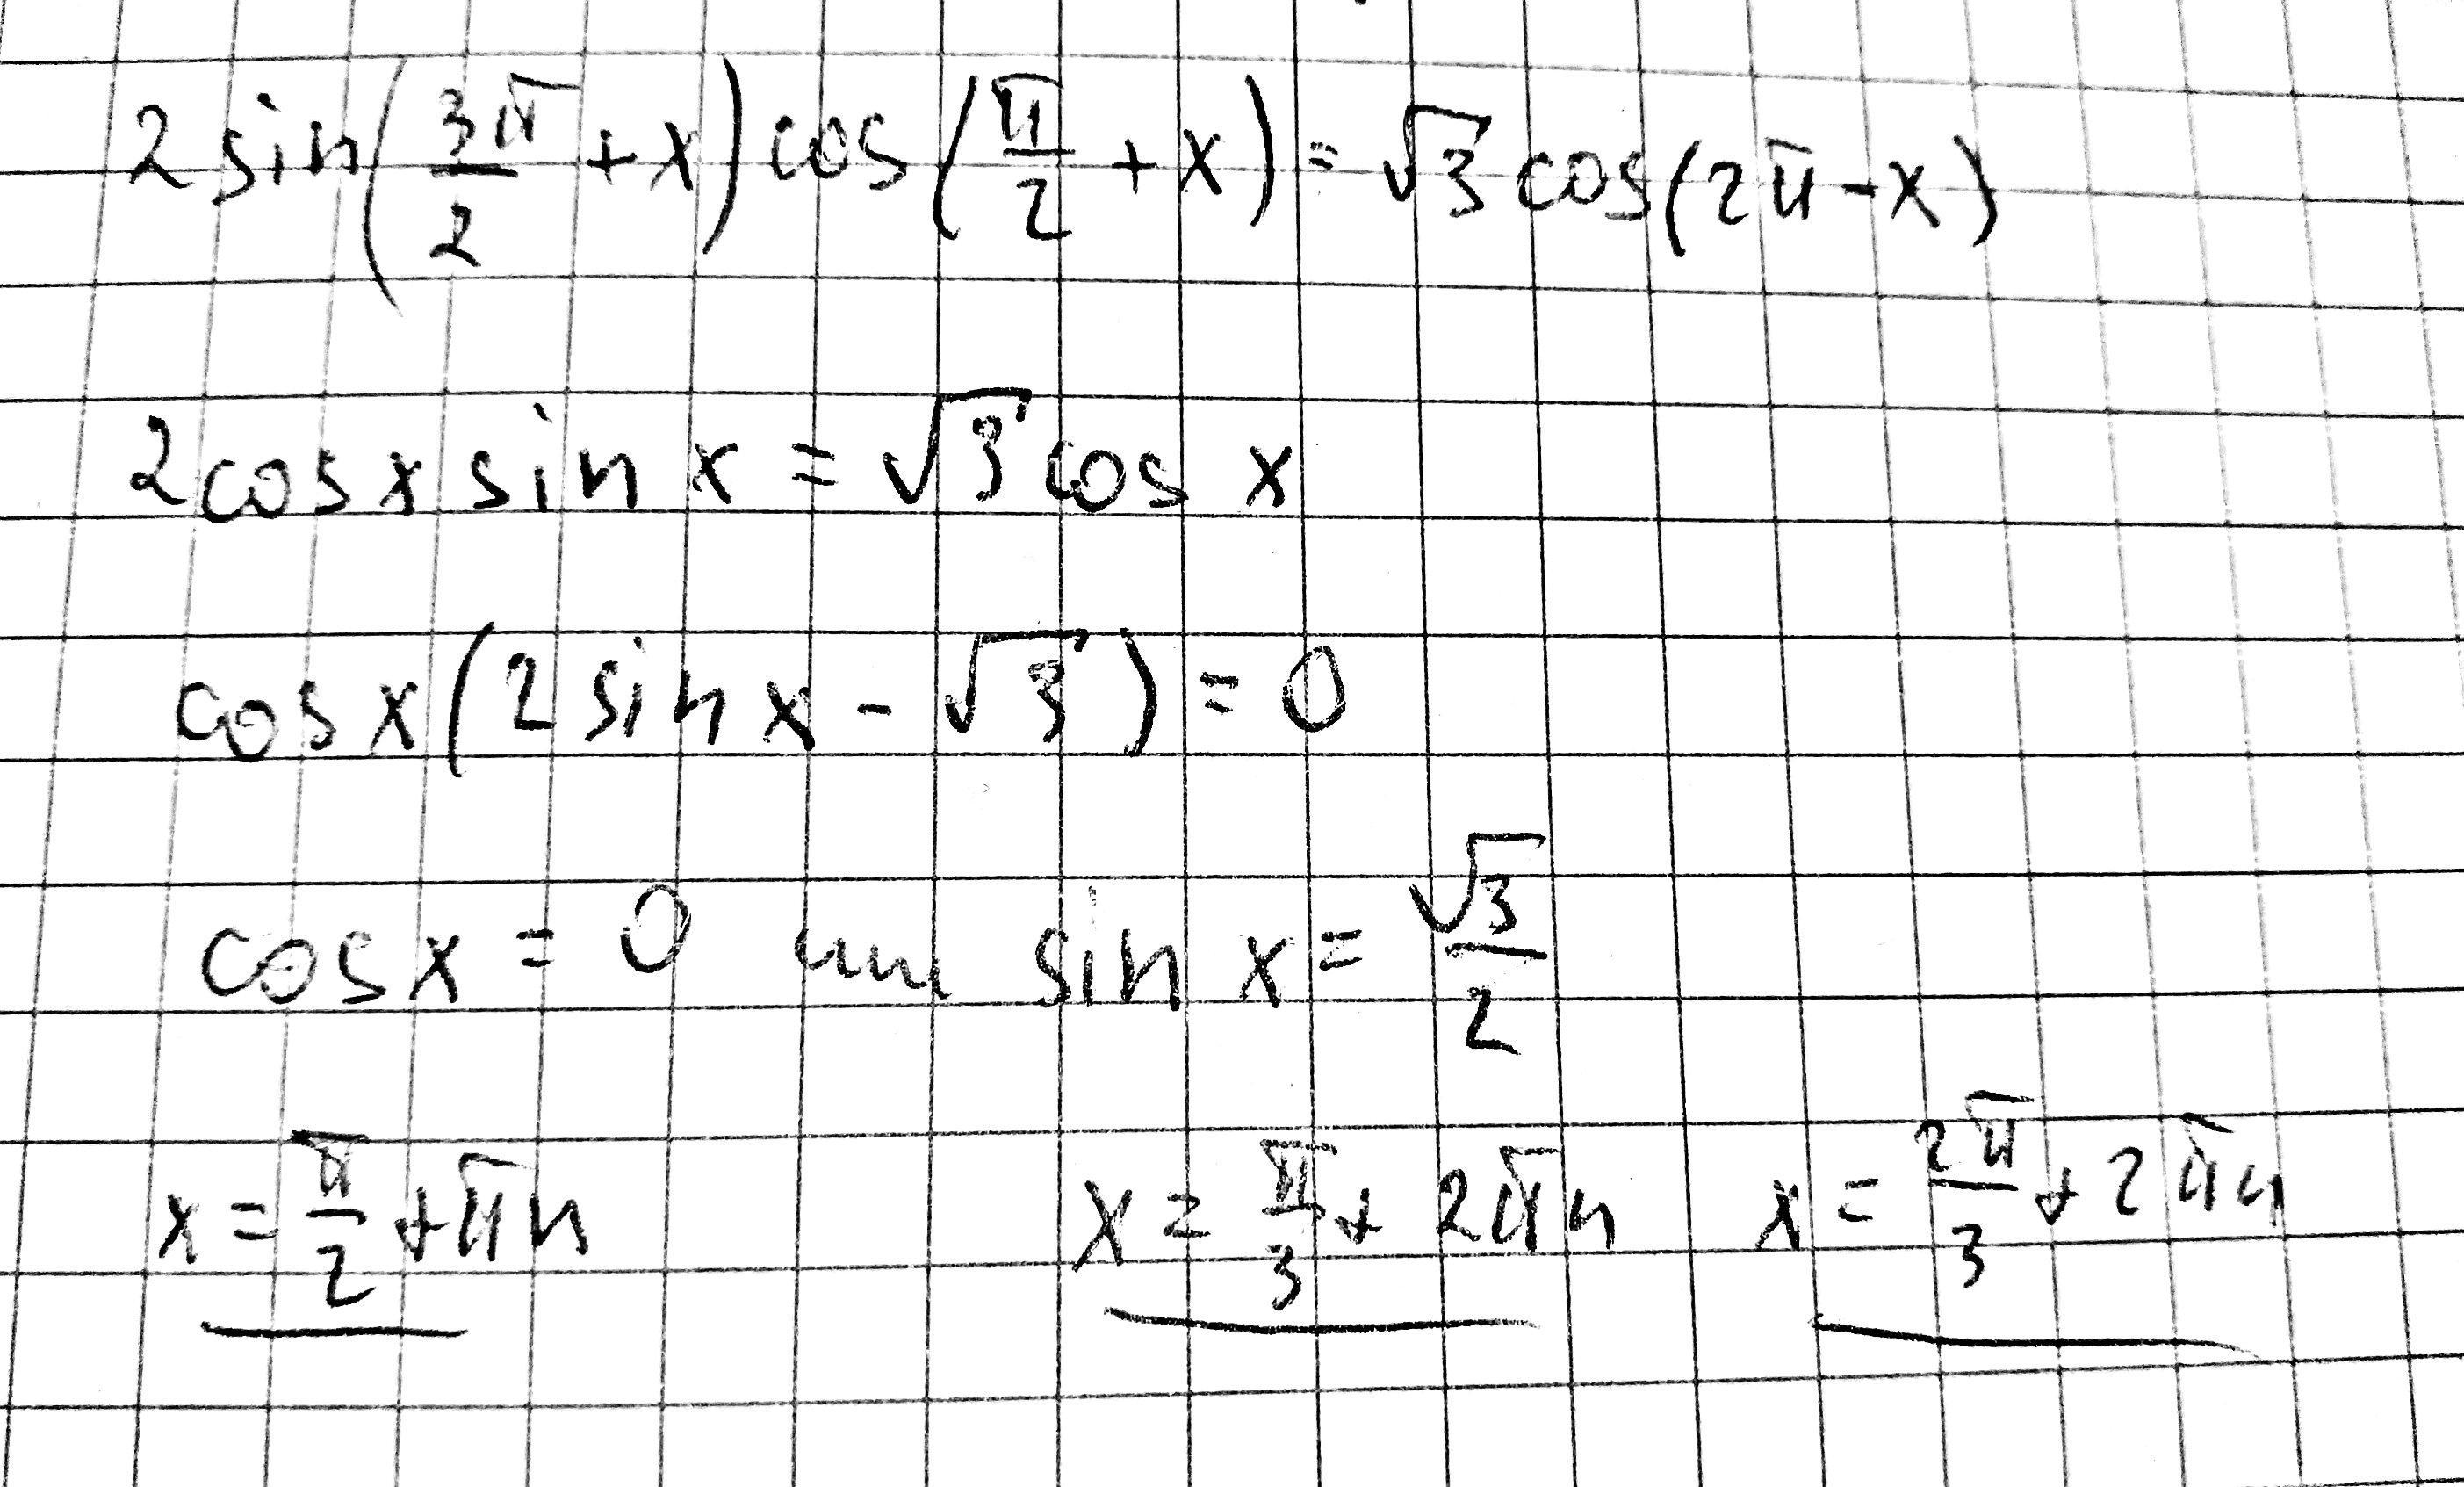 2 sin(3π/2 + x) cos(π/2 + x) = √3 cos(2π - x)
2 cos x sin x = √3 cos x
cos x (2 sin x - √3) = 0
cos x = 0 или sin x = √3/2
x = π/2 + πn x = π/3 + 2πn x = 2π/3 + 2πn